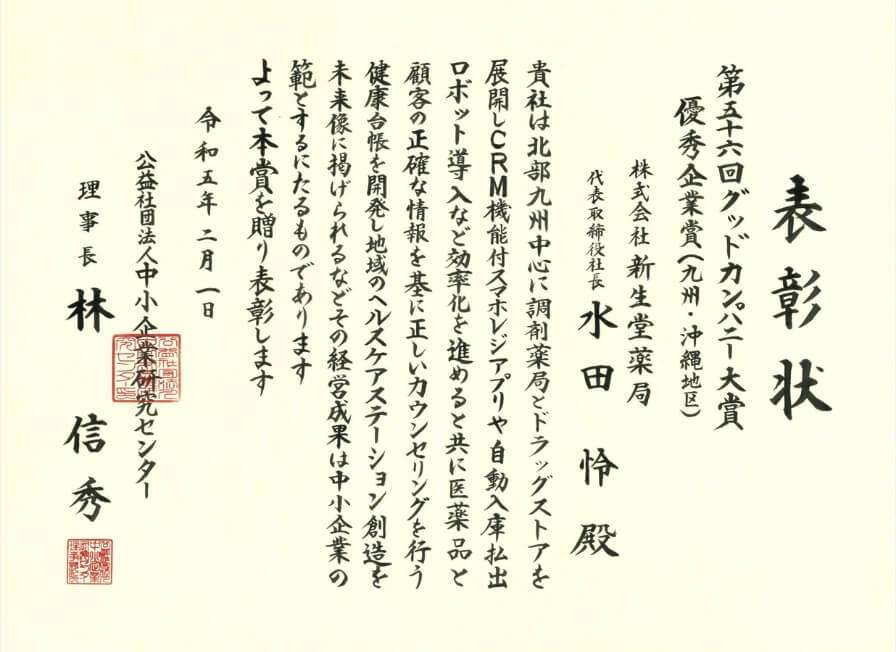 表彰状
第五十六回グッドカンパニー大賞
優秀企業賞(九州・沖縄地区)
株式会社 新生堂薬局
代表取締役社長 水田 怜 殿
貴社は北部九州中心に調剤薬局とドラッグストアを
展開しCRM機能付スマホレジアプリや自動入庫払出
ロボット導入など効率化を進めると共に医薬品と
顧客の正確な情報を基に正しいカウンセリングを行う
健康台帳を開発し地域のヘルスケアステーション創造を
未来像に掲げられるなどその経営成果は中小企業の
範とするにたるものであります
よって本賞を贈り表彰します
令和五年二月一日
公益社団法人中小企業研究センター
理事長 林 信秀